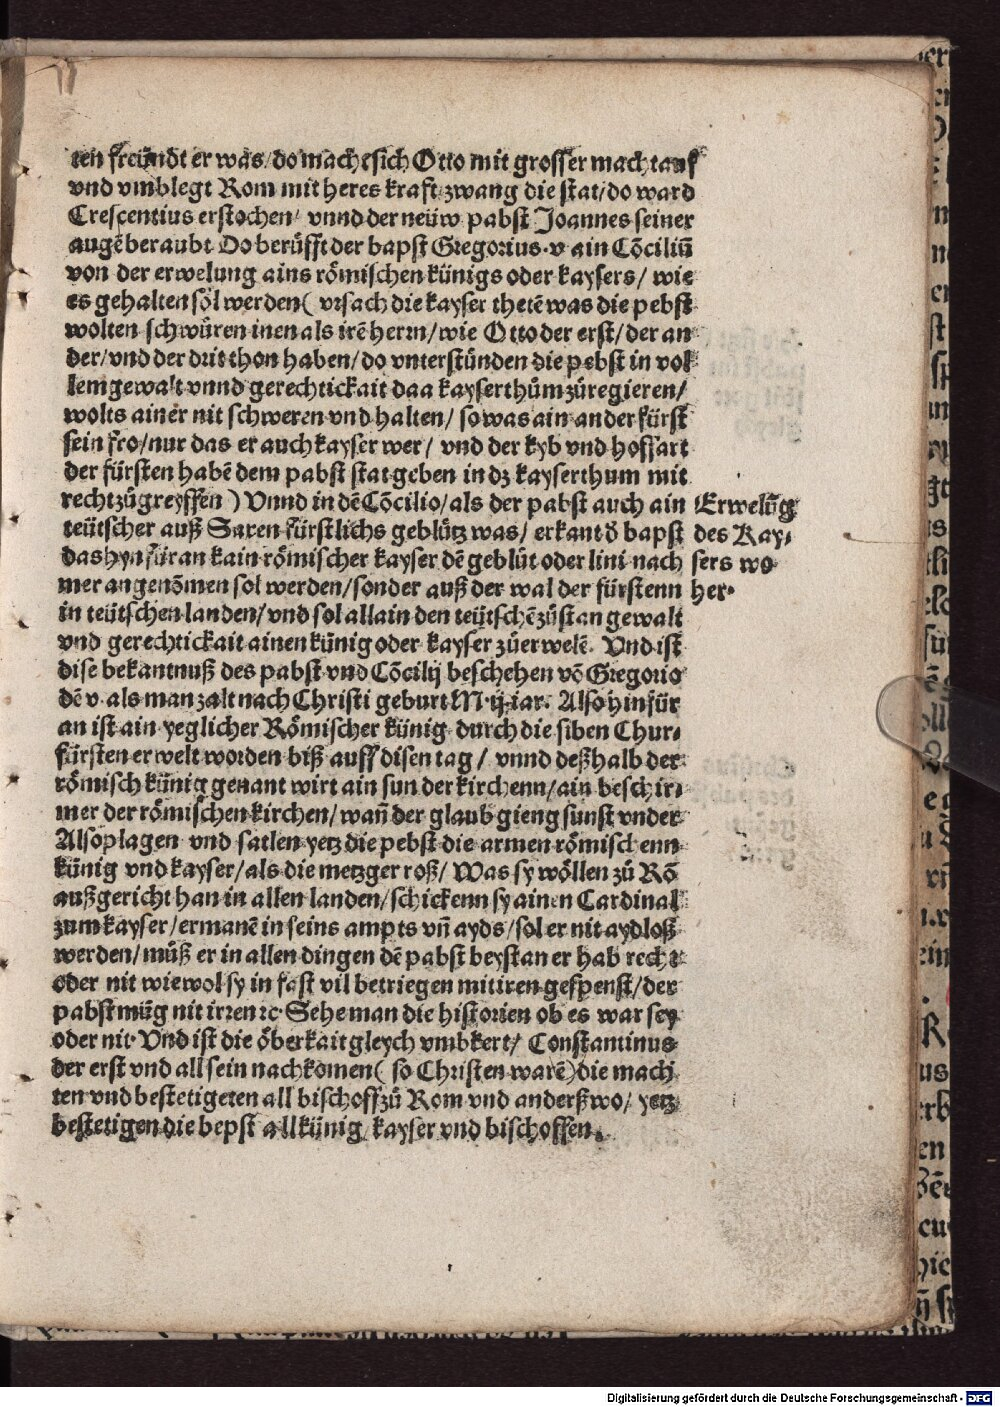 ten freündt er was/ do macht sich Otto mit grosser macht auf
vnd vmblegt Rom mit heres kraft/ zwang die stat/ do ward
Crescentius erstochen/ vnnd der neüw pabst Joannes seiner
augē beraubt Do berůfft der bapst Gregorius ·v· ain Cōciliū
von der erwelung ains römischen künigs oder kaysers/ wie
es gehalten söl werden ( vrsach die kayser thetē was die pebst
wolten schwůren inen als irē herrn/ wie Otto der erst/ der an
der/ vnd der drit thon haben/ do vnterstünden die pebst in vol
lem gewalt vnnd gerechtickait daa kayserthům zů regieren/
wolts ainer nit schweren vnd halten/ so was ain ander fürst
sein fro/ nur das er auch kayser wer/ vnd der kyb vnd hoffart
der fürsten habē dem pabst stat geben in dz kayserthum mit
recht zů greyffen ) Vnnd in dē Cōcilio/ als der pabst auch ain
teütscher auß Saxen fürstlichs geblütz was/ erkant d̄ bapst
das hyn für an kain römischer kayser dē geblüt oder lini nach
mer angenōmen sol werden/ sonder auß der wal der fürstenn
in teütschen landen/ vnd sol allain den teütschē zůstan gewalt
vnd gerechtickait ainen künig oder kayser zů erwelē. Vnd ist
dise bekantnuß des pabst vnd Cōcilij beschehen vō Gregorio
dē v· als man zalt nach Christi geburt M·ij· iar. Also hinfür
an ist ain yeglicher Römischer künig durch die siben Chur-
fürsten erwelt worden biß auff disen tag/ vnnd deßhalb der
römisch künig genant wirt ain sun der kirchenn/ ain beschir-
mer der römischen kirchen/ wañ der glaub gieng sunst vnder
Also plagen vnd satlen yetz die pebst die armen römischenn
künig vnd kayser/ als die metzger roß/ Was sy wöllen zů Rō
außgericht han in allen landen/ schickenn sy ainen Cardinal
zum kayser/ ermanē in seins ampts vñ ayds/ sol er nit aydloß
werden/ můß er in allen dingen dē pabst beystan er hab recht
oder nit wiewol sy in fast vil betriegen mit iren gespenst/ der
pabst müg nit irren ꝛc· Sehe man die historien ob es war sey
oder nit· Vnd ist die öberkait gleych vmbkert/ Constantinus
der erst vnd all sein nachkomen ( so Christen warē ) die mach
ten vnd bestetigeten all bischoff zů Rom vnd anderßwo/ yetz
bestetigen die bepst all künig kayser vnd bischoffen.
Erwelūg
des Kay-
sers wo
her·
Digitalisierung gefördert durch die Deutsche Forschungsgemeinschaft - DFG